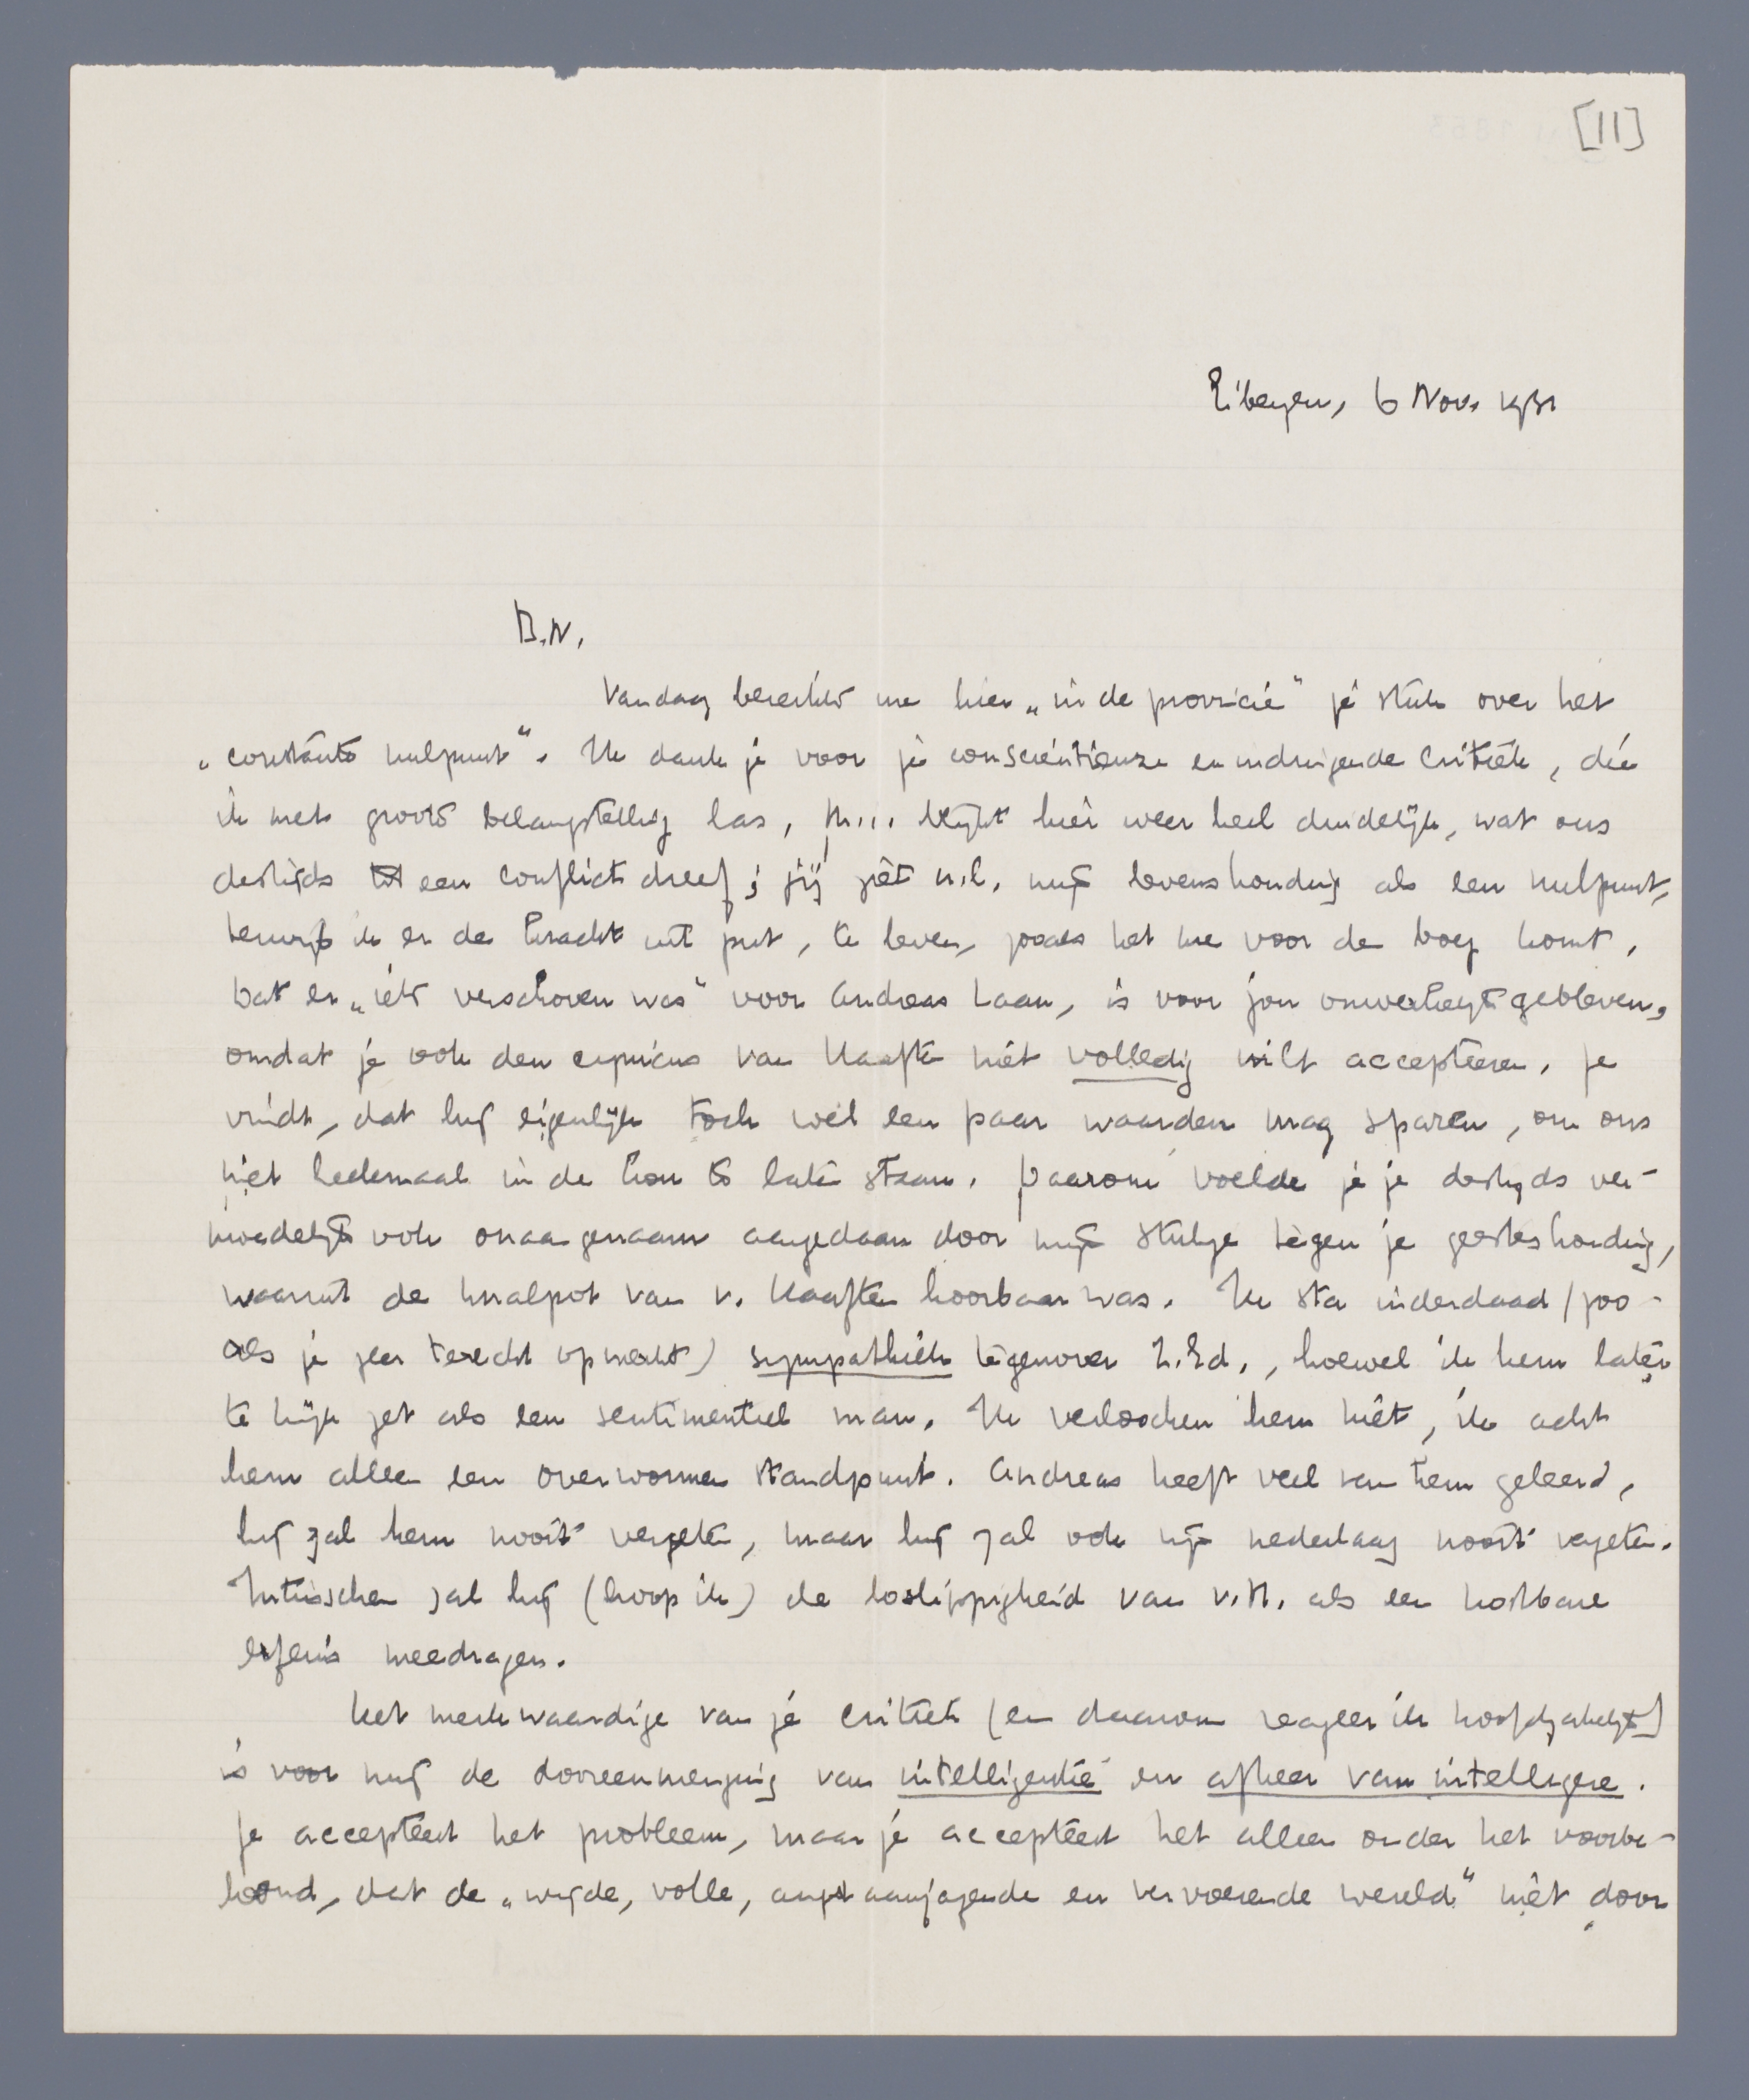 [11]
Eibergen, 6 Nov. 1931
B.N.
Vandaag bereikte me hier „in de provincie” je stuk over het
„constante nulpunt”. Ik dank je voor je consciëntieuze en indringende critiek, die
ik met groote belangstelling las. M... blijkt hier weer heel duidelijk, wat ons
destijds tot een conflict dreef; jij ziet n.l. mijn levenshouding als een nulpunt,
terwijl ik er de kracht uit put, te leven, zooals het me voor de boeg komt.
Dat er „iets verschoven was” voor Andreas Laan, is voor jou onverteerd gebleven,
omdat je ook den cynicus van Haaften niet volledig wilt accepteeren. Je
vindt, dat hij eigenlijk toch wel een paar waarden mag sparen, om ons
niet heelemaal in de kou te laten staan. Daarom voelde je je destijds ver-
moedelijk ook onaangenaam aangedaan door mijn stukje tegen je geesteshouding,
waaruit de knalpot van v. Haaften hoorbaar was. Ik sta inderdaad (zoo-
als je zeer terecht opmerkt) sympathiek tegenover Z.Ed., hoewel ik hem later
te kijk zet als een sentimenteel man. Ik verloochen hem niet, ik acht
hem alleen een overwonnen standpunt. Andreas heeft veel van hem geleerd,
hij zal hem nooit vergeten, maar hij zal ook zijn nederlaag nooit vergeten.
Intusschen zal hij (hoop ik) de loslippigheid van v.H. als een kostbare
erfenis meedragen.
Het merkwaardige van je critiek (en daarom reageer ik hoofdzakelijk)
is voor mij de dooreenmenging van intelligentie en afkeer van intelligere.
Je accepteert het probleem, maar je accepteert het alleen onder het voorbe-
houd, dat de „wijde, volle, angstaanjagende en vervoerende wereld” niet door